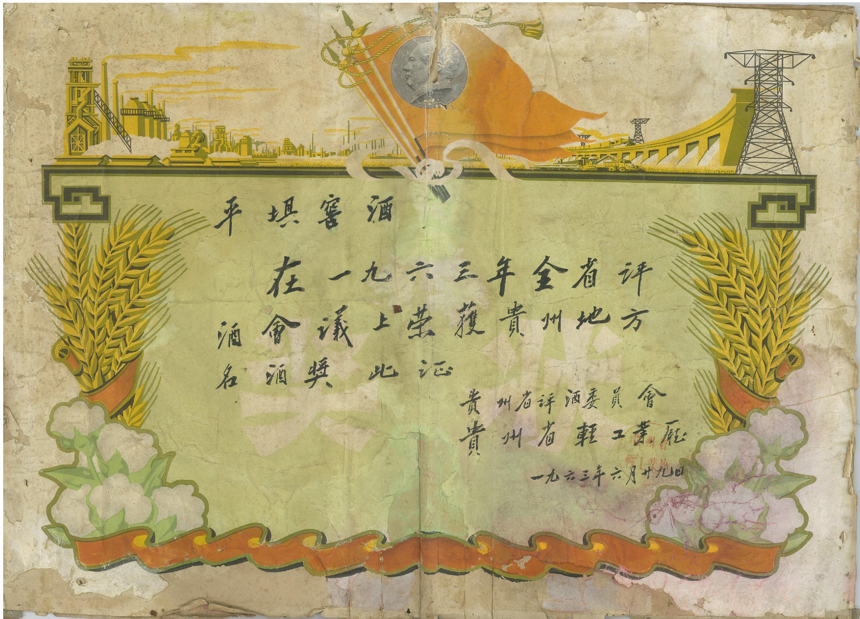 平埧窖酒
在一九六三年全省评
酒會議上荣獲貴州地方
名酒奬此证
贵州省评酒委员會
貴州省輕工業厰
一九六三年六月廿九日